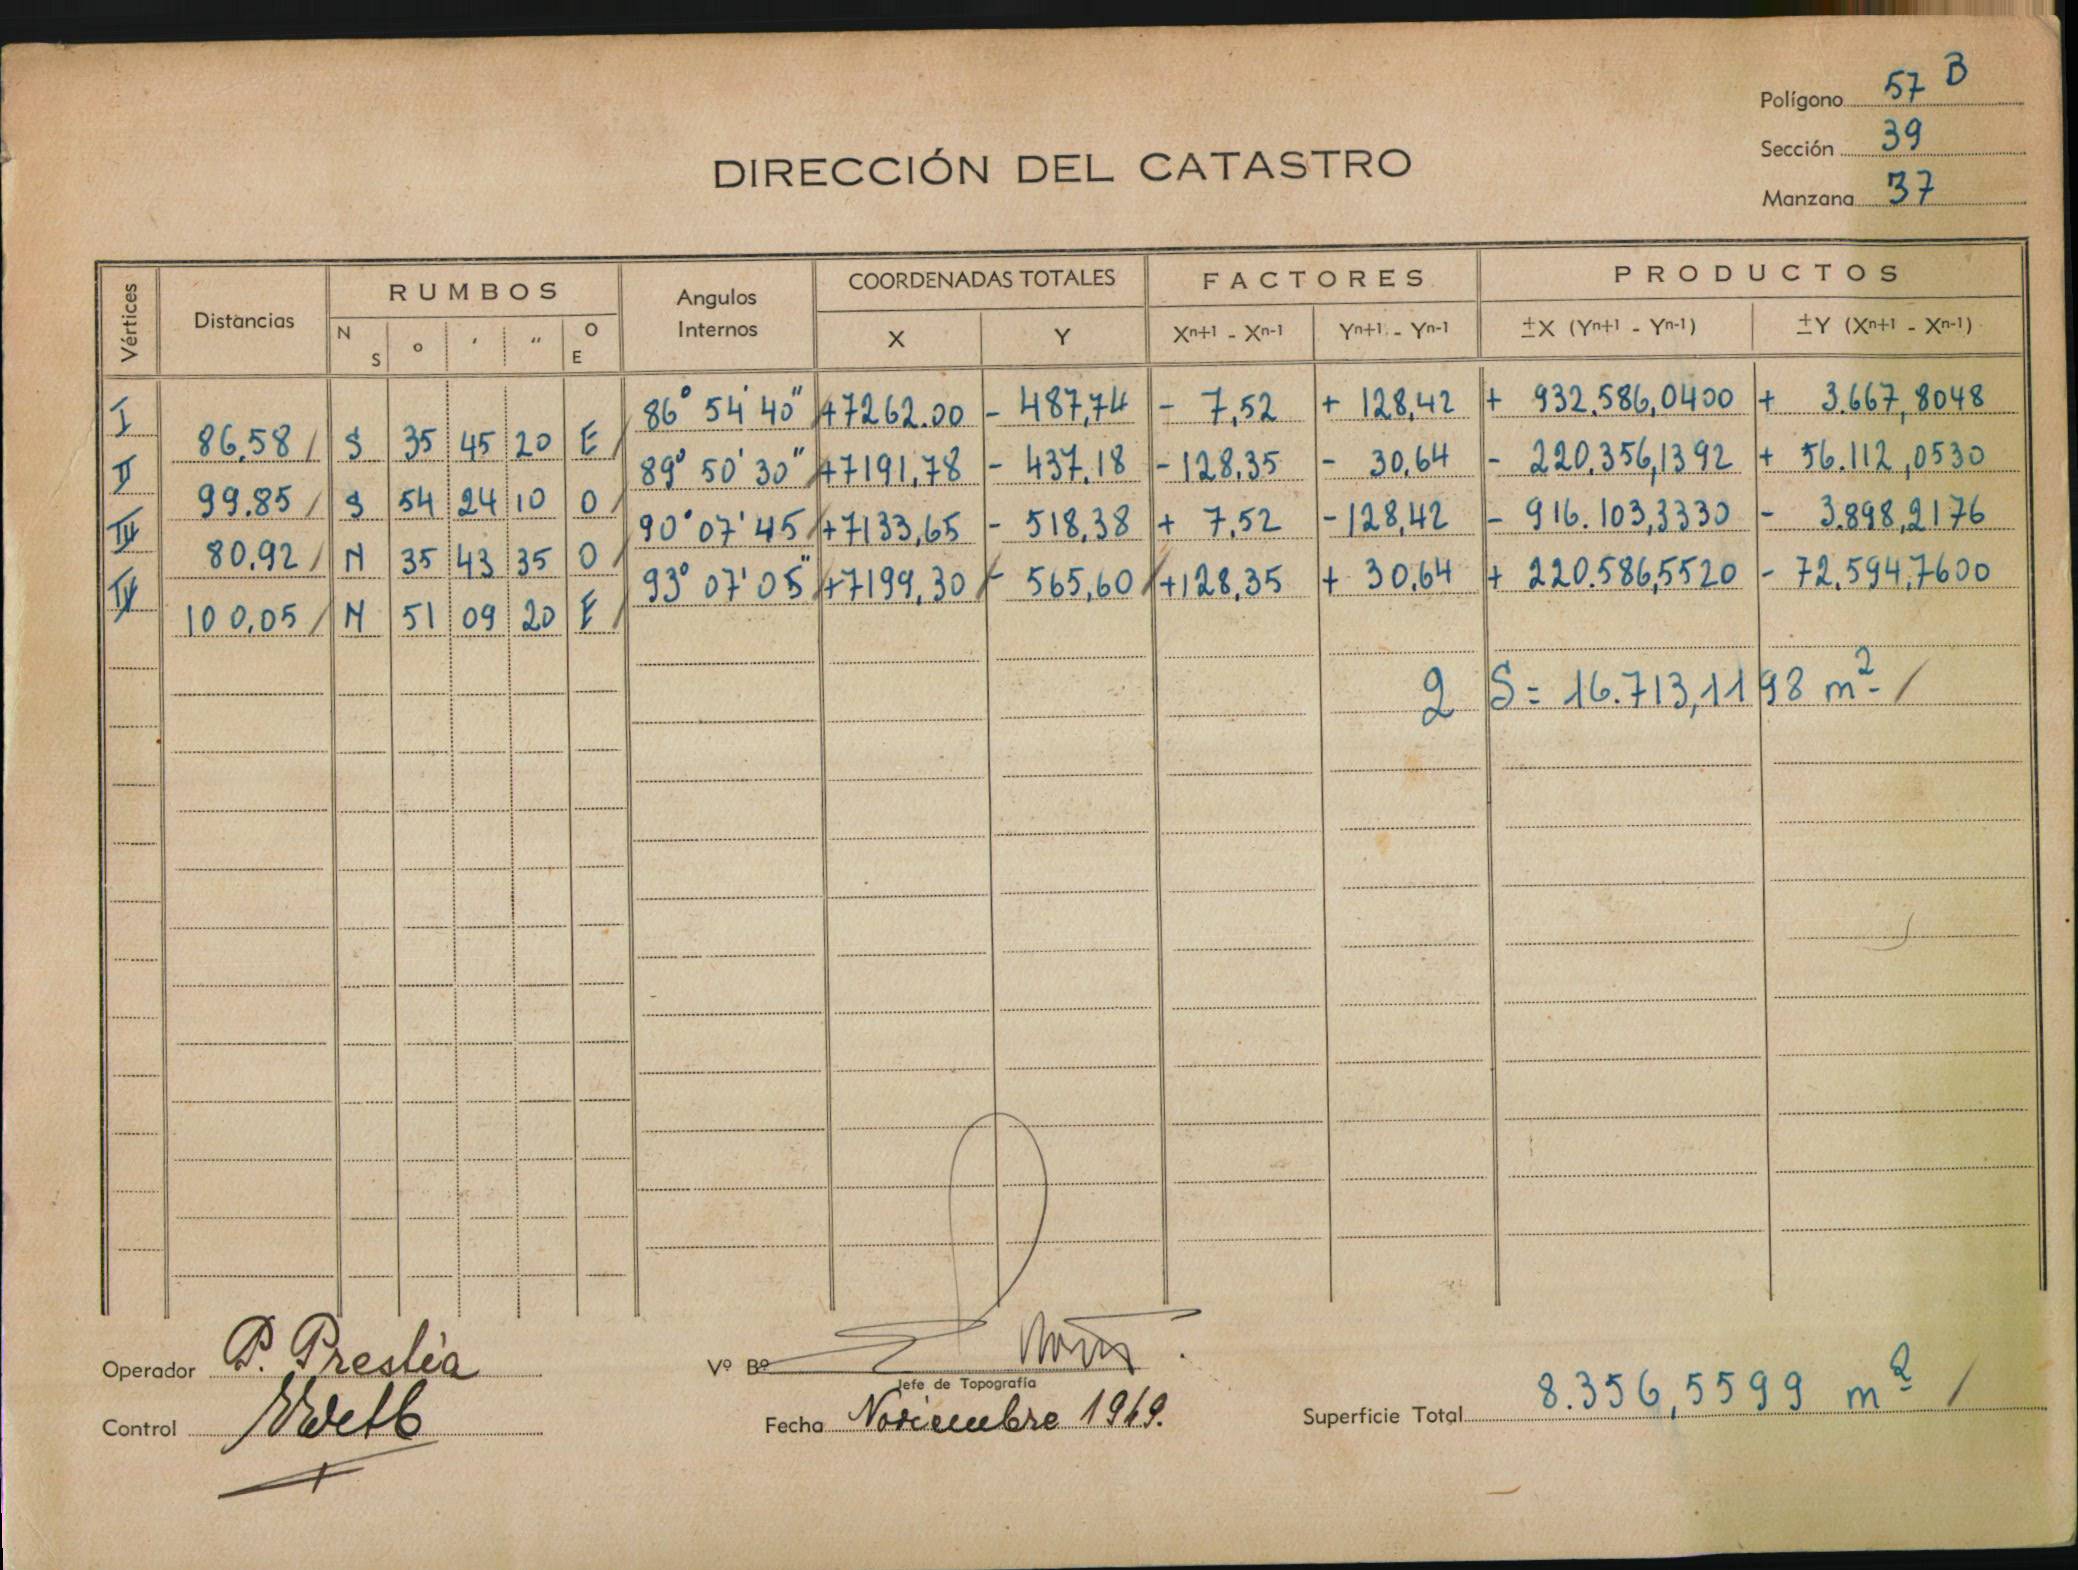 Polígono 57 B
Sección 39
Manzana 37
DIRECCIÓN DEL CATASTRO
Vértices Distancias RUMBOS Angulos Internos COORDENADAS TOTALES FACTORES PRODUCTOS
N S o ' " O E X Y Xn+1 - Xn-1 Yn+1 - Yn-1 ±X (Yn+1 - Yn-1) ±Y (Xn+1 - Xn-1)
I 86° 54' 40" +7262.00 - 487,74 - 7,52 + 128,42 + 932.586,0400 + 3.667,8048
86,58 S 35 45 20 E
II 89° 50' 30" +7191,78 - 437,18 -128,35 - 30,64 - 220.356,1392 + 56.112,0530
99.85 S 54 24 10 O
III 90° 07' 45 +7133,65 - 518,38 + 7,52 -128,42 - 916.103,3330 - 3.898,2176
80,92 N 35 43 35 O
IV 93° 07' 05" +7199,30 - 565,60 +128,35 + 30,64 + 220.586,5520 - 72.594,7600
100,05 N 51 09 20 E
2 S = 16.713,1198 m²
Operador P. Preslia
Vº Bº
Jefe de Topografía
Control
Fecha Noviembre 1949.
Superficie Total 8.356,5599 m²